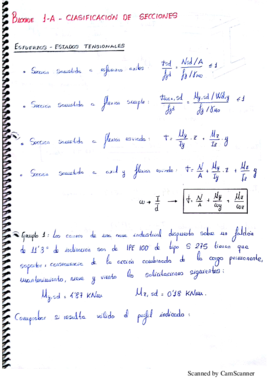 BLOQUE 1-A - CLASIFICACIÓN DE SECCIONES
ESFUERZOS - ESTADOS TENSIONALES
• Sección sometida a esfuerzo axil:
• Sección sometida a flexión simple:
• Sección sometida a flexión esviada: σ = My/Iy · z + Mz/Iz y
• Sección sometida a axil y flexión esviada: σ = N/A + My/Iy · z + Mz/Iz y
ω = I/d → σ = N/A + My/ωy + Mz/ωz
Ejemplo 1: Las correas de una nave industrial dispuesta sobre un faldón
de 11'3° de inclinación son de IPE 100 de tipo S 275 tienen que
soportar, consecuencia de la acción combinada de la carga permanente,
mantenimiento, nieve y viento las solicitaciones siguientes:
My,sd = 4'87 KNm Mz,sd = 0'18 KNm
Comprobar si resulta válido el perfil indicado:
Scanned by CamScanner